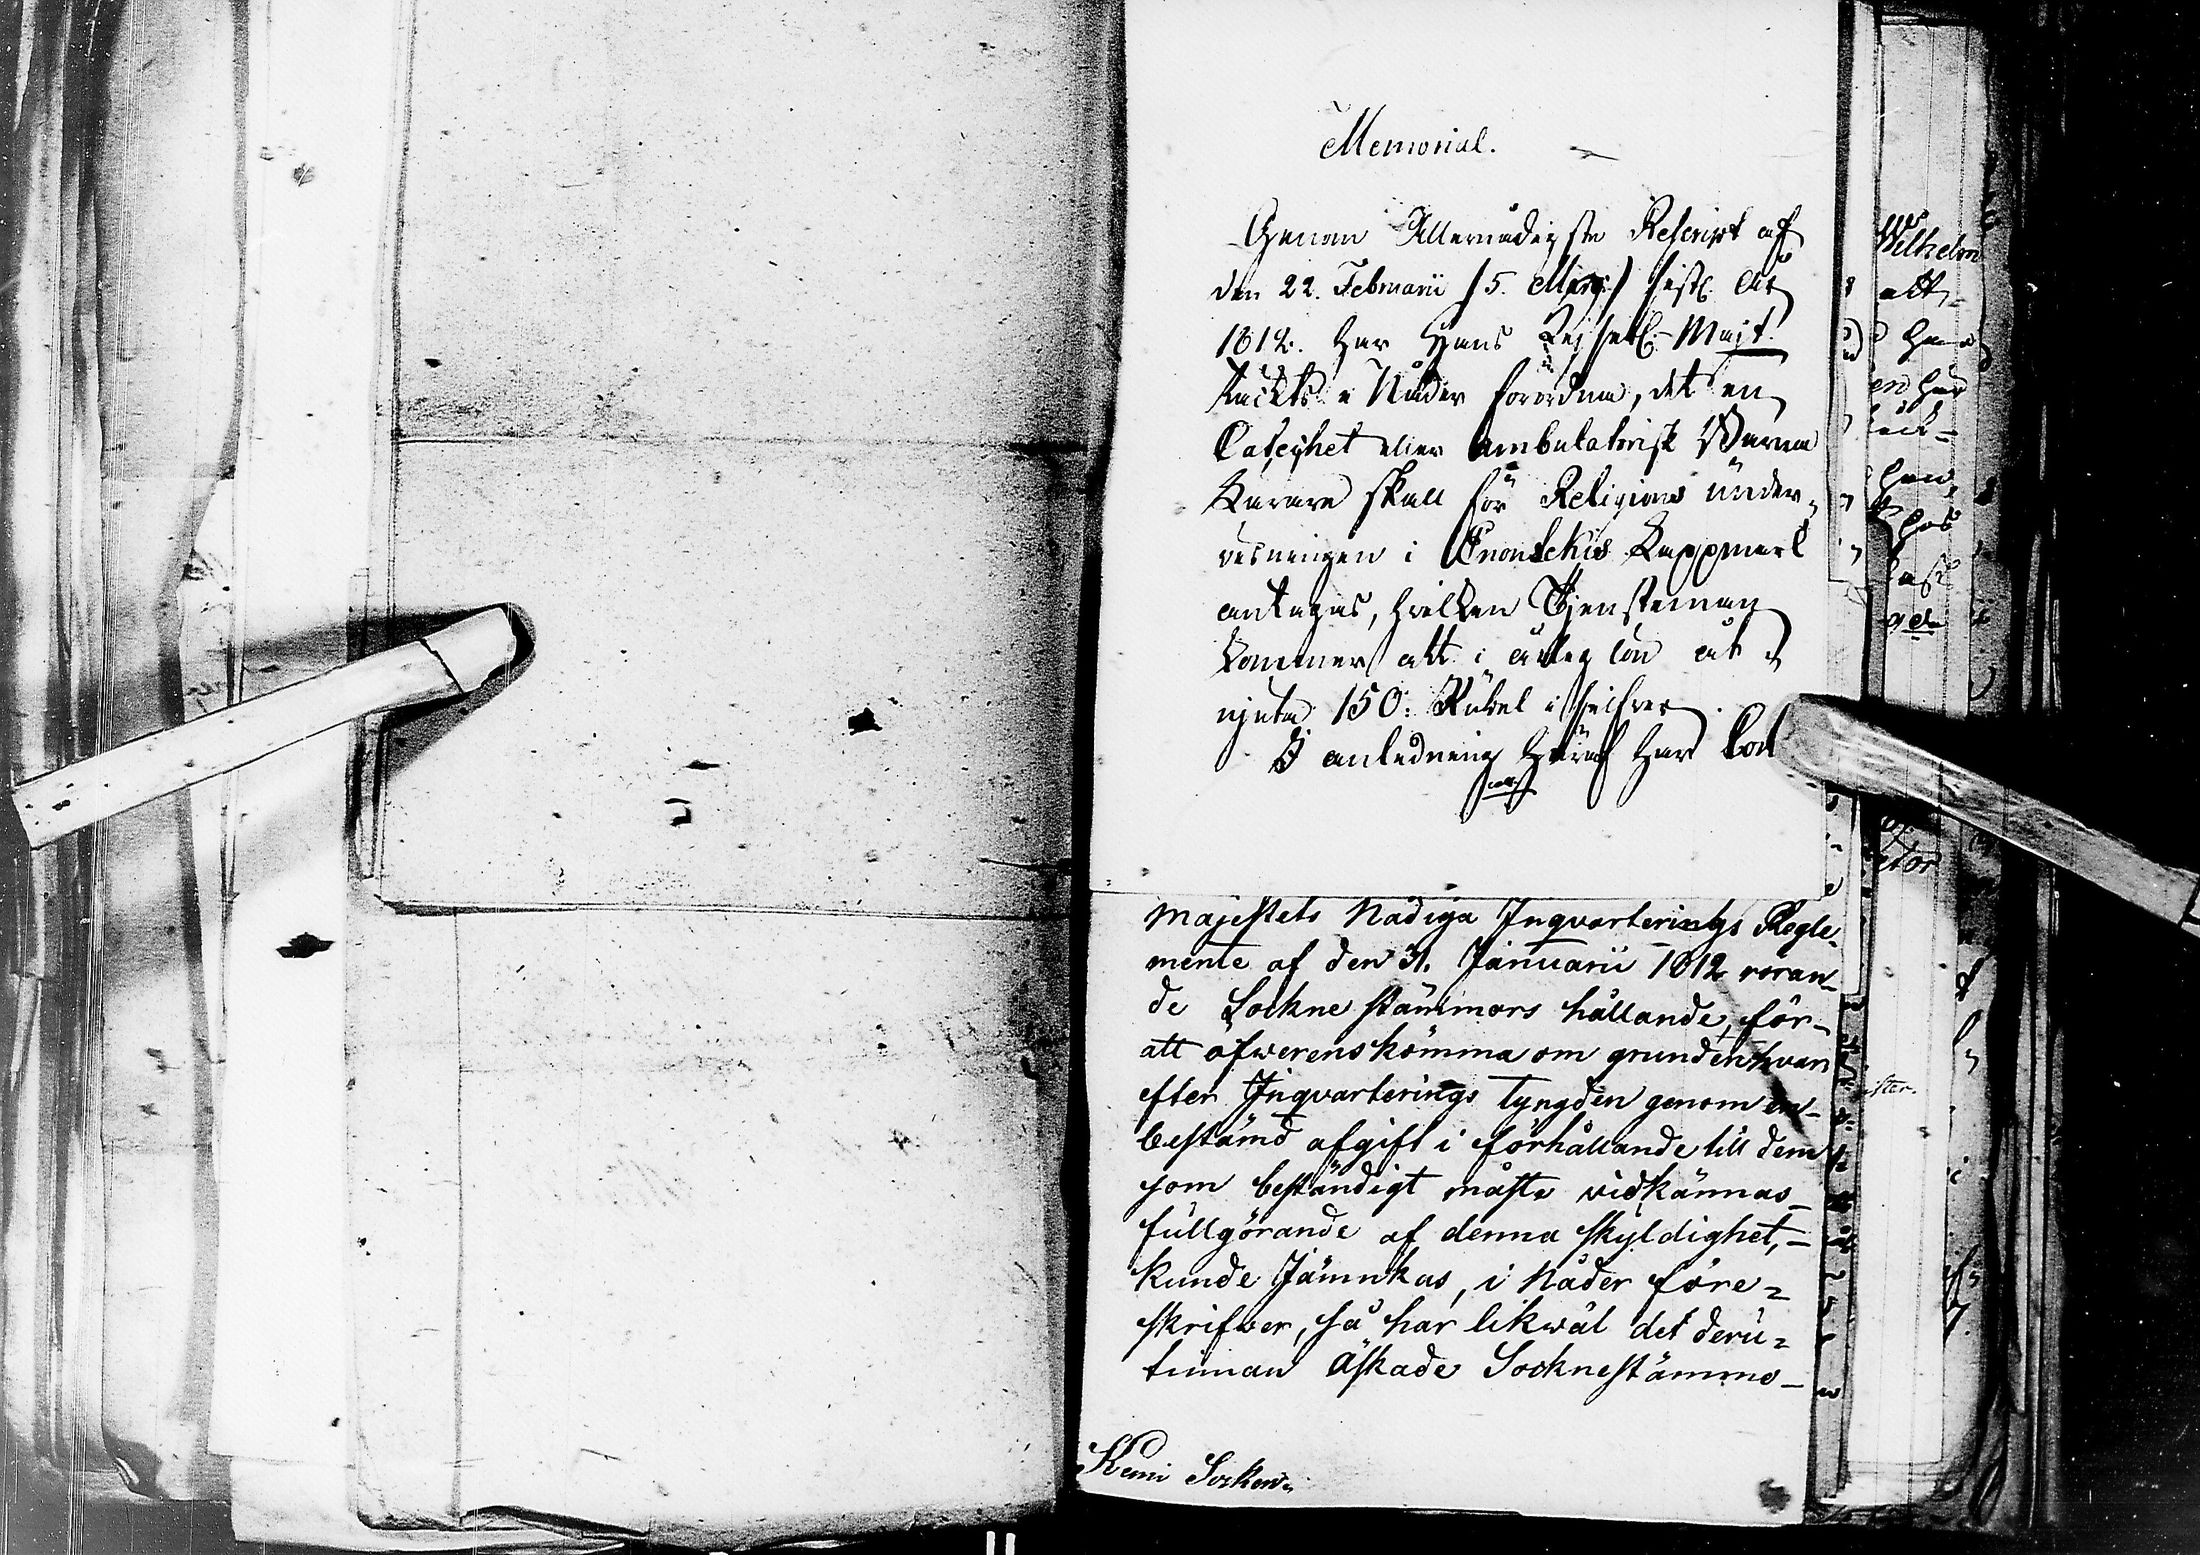 Memorial.
Genom Allernådigste Rescript af
den 22. Februarii (5. Mars) sistl. År
1812. har Hans Kejserl. Majt.
täckts i Nåder förordna, det en
Catechet eller ambulatorisk Barna
Lärare skall för Religions under-
visningen i Enontekis Lappmark
antagas, hvilken Tjensteman
kommer att i årlig lön åt
njuta 150: Rubel i silfver.
I anledning häraf har Con
Majestets Nådiga Inqvarterings Regle-
mente af den 31. Januarii 1812 röran-
de Sockne stämmors hållande, för-
att öfwerenskomma om grunden hvar
efter Inqvarterings tyngden genom en-
bestämd afgift i förhållande till dem
som beständigt måste vidkännas
fullgörande af denna skyldighet,-
kunde Jämnkas, i Nåder före-
skrifwer, så har likwäl det deru-
tinnan äskade Socknestämmo-
Kemi Socken.
Wilhelm
att
en har
hos